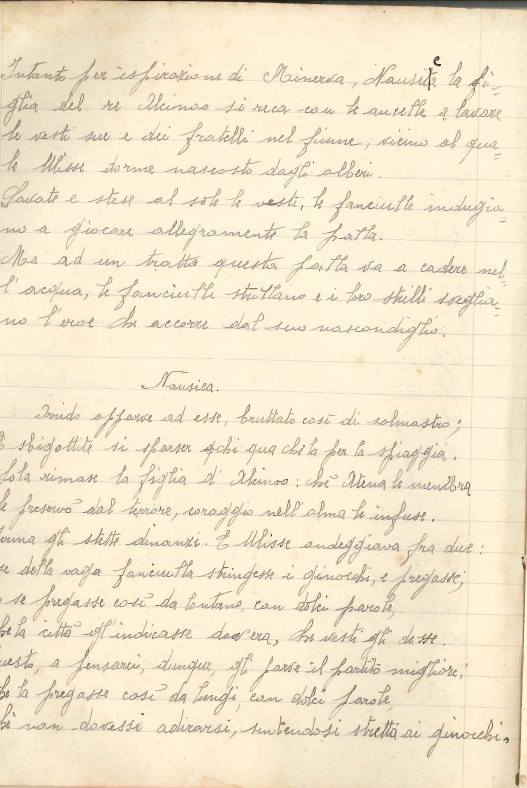 Intanto per ispirazione di Minerva, Nausica la fi=
glia del re Alcinoo si reca con le ancelle a lavare
le vesti sue e dei fratelli nel fiume, vicino al qua=
le Ulisse dorme nascosto dagli alberi.
Lavate e stese al sole le vesti, le fanciulle indugia=
no a giocare allegramente la palla.
Ma ad un tratto questa palla va a cadere nel=
l'acqua, le fanciulle strillano e i loro strilli sveglia=
no l'eroe che accorre dal suo nascondiglio.
Nausica.
Orrido apparve ad esse, bruttato così di salmastro;
E sbigottite si sparser chi qua chi la per la spiaggia.
Sola rimase la figlia d'Alcinoo: chè Atena le membra
le preservò dal terrore, coraggio nell'alma le infuse.
Ferma gli stette dinanzi. E Ulisse ondeggiava fra due:
se della vaga fanciulla stringesse i ginocchi, e pregasse;
o se pregasse così da lontano, con dolci parole,
che la città gl'indicasse dov'era, che vesti gli desse.
Questo, a pensarci, dunque, gli parve il partito migliore:
che la pregasse così da lungi, con dolci parole,
chè non dovessi adirarsi, sentendosi stretta ai ginocchi.